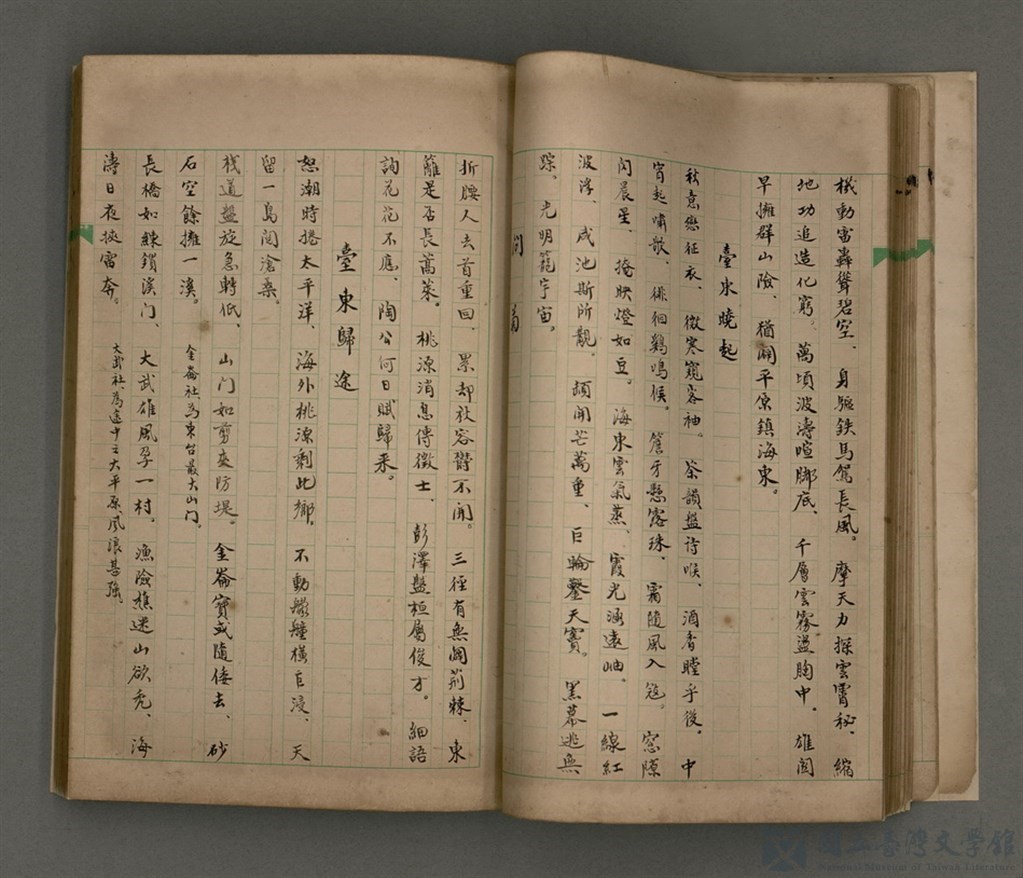 機動雷轟聳碧空、身驅鉄馬駕長風。摩天力探雲霄秘、縮
地功追造化窮、萬頃波濤喧脚底、千層雲霧盪胸中。雄關
早擁群山險、猶闢平原鎮海東。
臺東曉起
秋意戀征衣、微寒窺客袖。茶韻盪詩喉、酒香瞠乎後。中
宵起嘯歌、徘徊鷄鳴候。簷牙懸露珠、霜隨風入寇。窓隙
閃晨星、掩映燈如豆。海東雲氣蒸、霞光涵遠岫。一線紅
波浮、咸池斯所覯。頡開芒萬重、巨輪鑿天竇。黑幕逃無
踪、光明篭宇宙。
折腰人去首重回、累却秋容鬱不開。三徑有無闢荊棘、東
籬是否長蒿萊。桃源消息傳徵士、彭澤盤桓屬俊才。細語
詢花花不應、陶公何日賦歸来。
臺東歸途
怒潮時捲太平洋、海外桃源剩此鄉。不動艨艟橫巨浸、天
留一島閲滄桑。
栈道盤旋急轉低、山门如剪夾防堤。金崙寶或隨倭去、砂
石空餘擁一溪。金崙社為東台最大山门。
長橋如練鎖溪门、大武雄風孕一村。漁險樵迷山欲禿、海
濤日夜挾雷奔。大武社為途中之大平原风浪甚強。
國立臺灣文學館
National Museum of Taiwan Literature